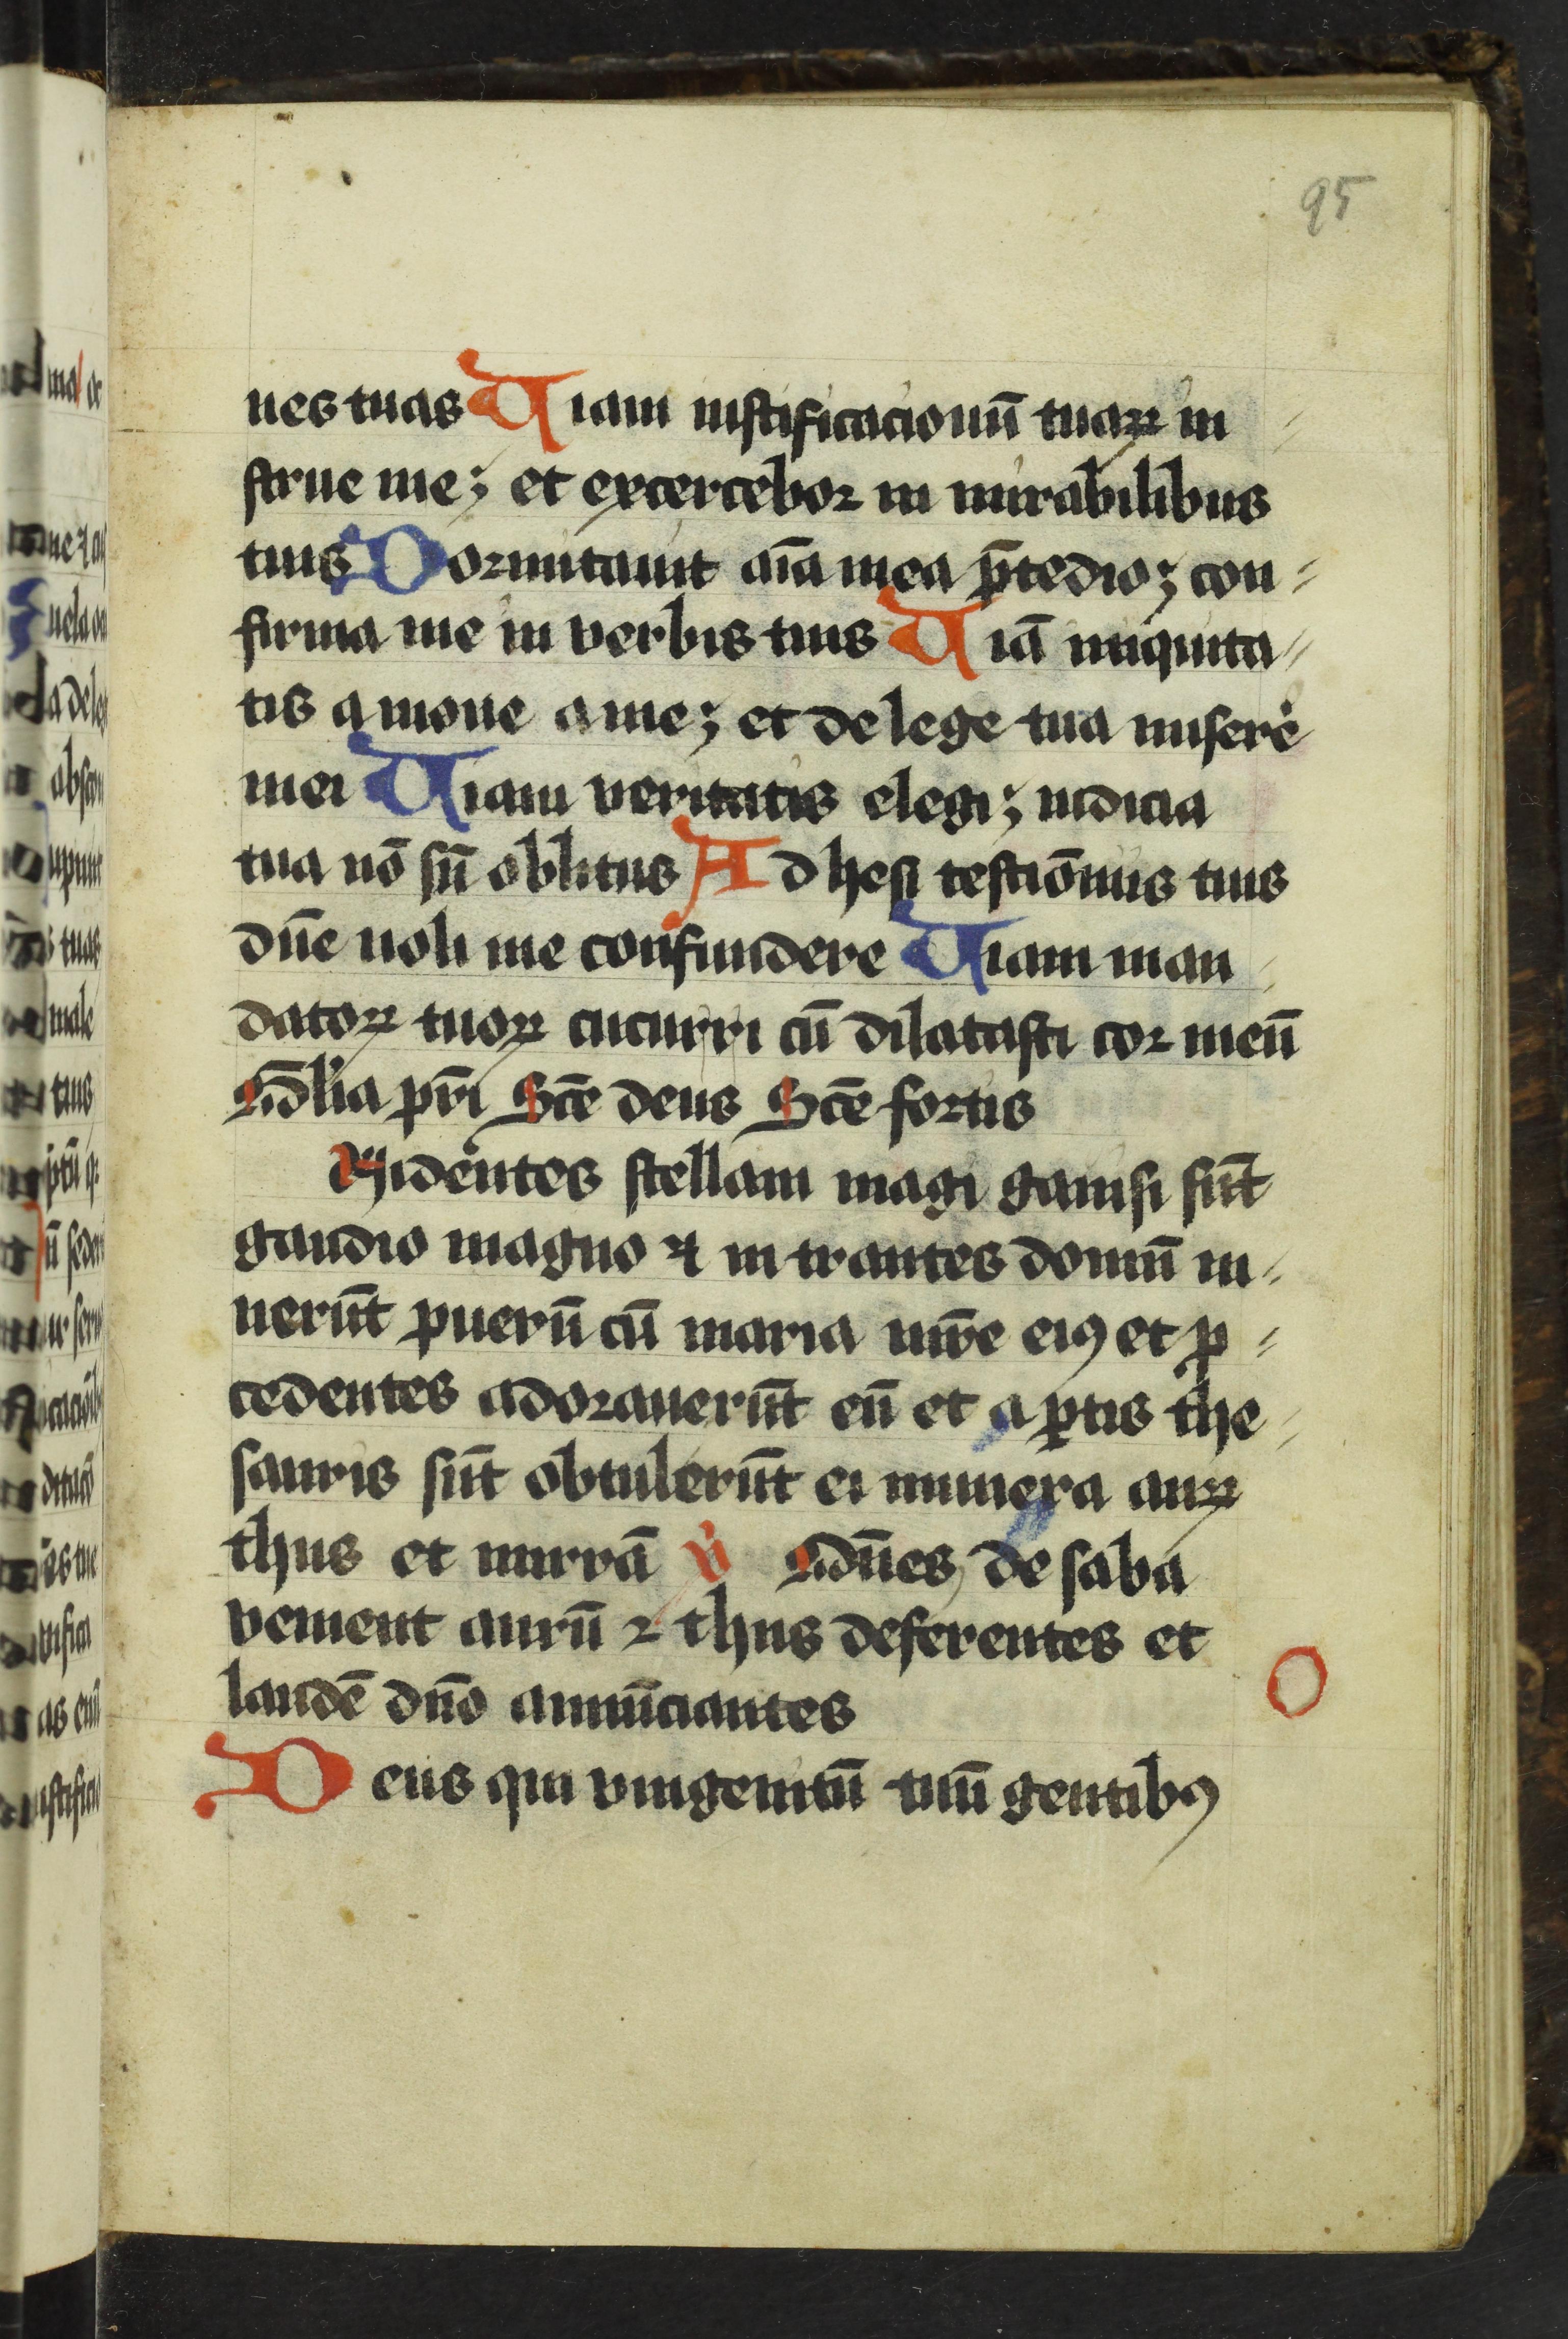 95
nes tuas Uiam iustificacionū tuaꝝ in
strue me; et excercebor in mirabilibus
tuis Dormitauit aīa mea p̄tedio; con=
firma me in verbis tuis Uiā iniquita=
tis amoue a me; et de lege tua misere
mei Uiam veritatis elegi; iudicia
tua nō sū oblitus Adhesi testiōniis tuis
dn̄e noli me confundere Uiam man
datoꝝ tuoꝝ cucurri cū dilatasti cor meū
Gl̄ia pr̄i Scē deus Scē fortis
Uidentes stellam magi gauisi sūt
gaudio magno ⁊ intrantes domū in=
uerūt puerū cū maria mr̄e eiꝰ et ꝓ=
cedentes adorauerūt eū et aꝑtis the=
sauris sūt obtulerūt ei munera auꝝ
thus et mirrā v̇ Om̄es de saba
venient aurū ⁊ thus deferentes et
laudē dn̄o annūciantes
O
Deus qui vnigenitū tuū gentibꝰ